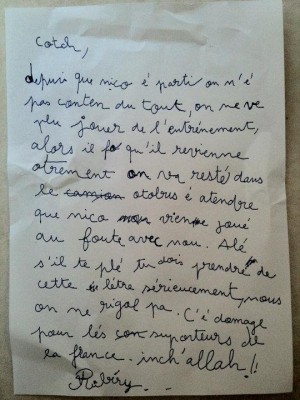 cotch,
depuis que nico é parti on n'é
pas conten du tout, on ne ve
plu jouer de l'entrénement,
alors il fo qu'il revienne
otrement on va resté dans
le camion otobus é atendre
que nico vienne joué
au foute avec nou. Alé
s'il te plé tu dois prendre de
cette létre sérieucement, nous
on ne rigol pa. C'é domage
pour lés son suporteurs de
la france. inch'allah !!
Ribéry.